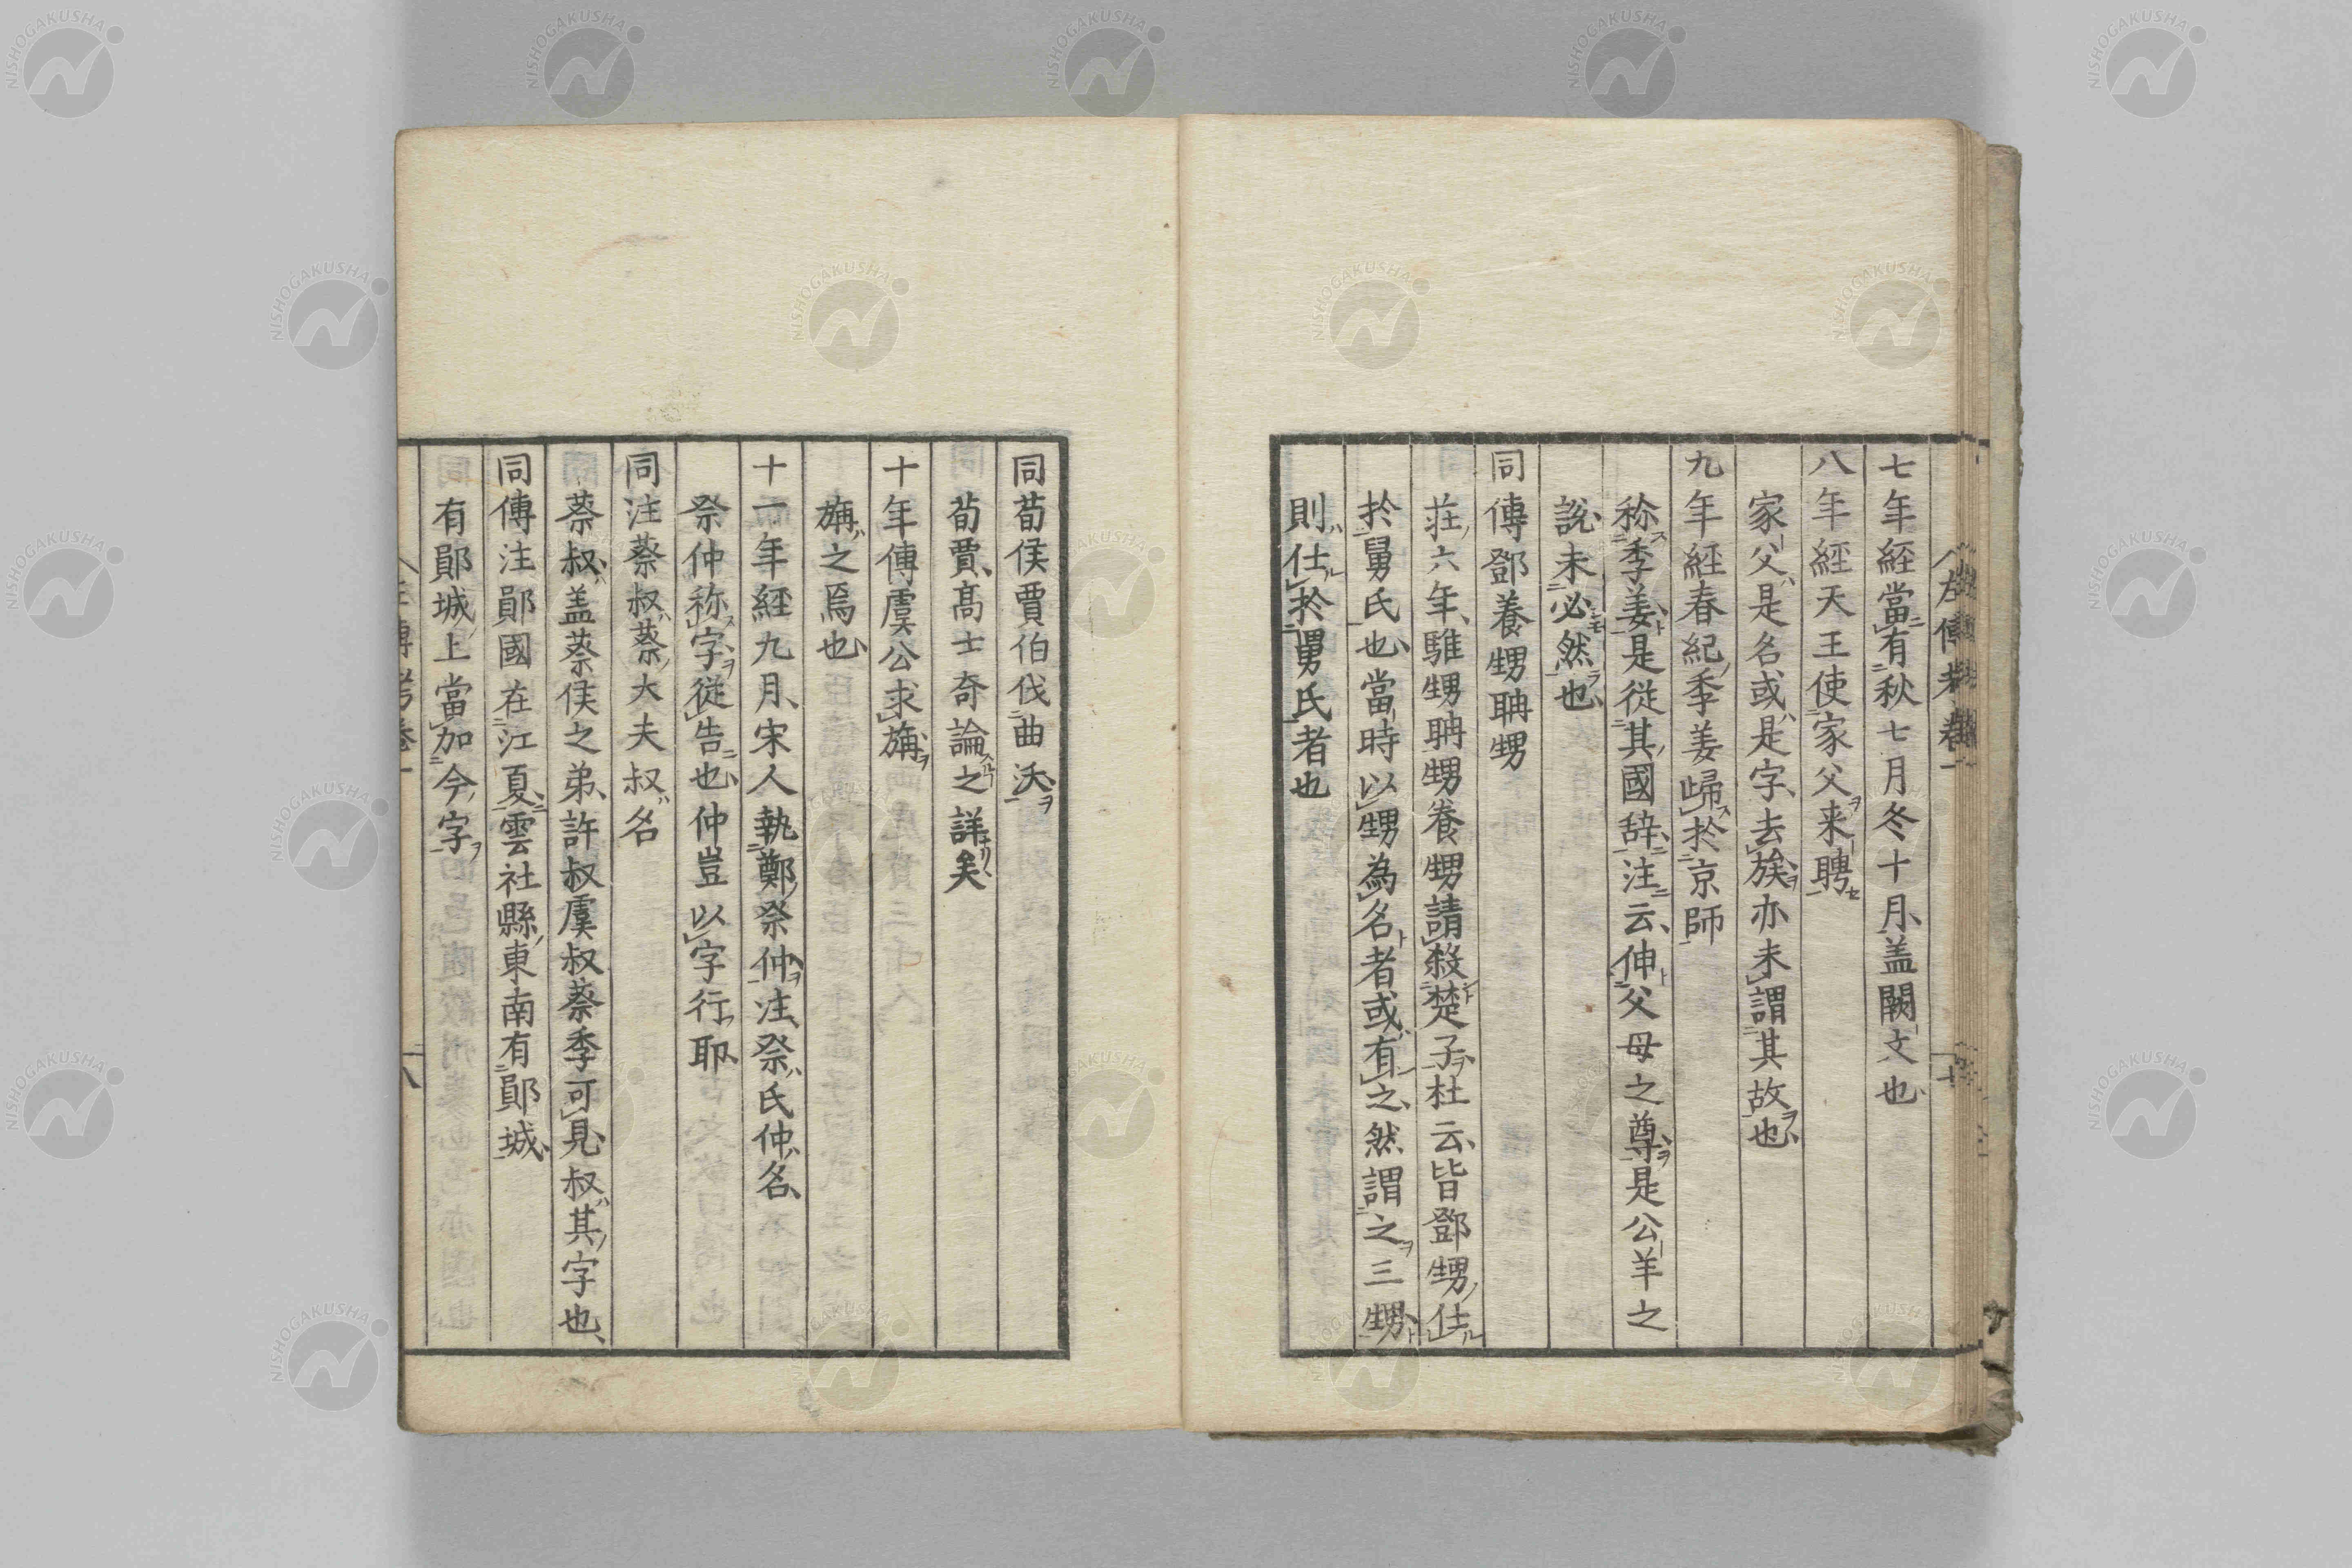 七年経當有秋七月冬十月盖闕文也
八年經天王使家父来聘
家父是名或是字去族亦未謂其故也
九年經春紀季姜歸於京師
称季姜是従其國辞注云伸父母之尊是公羊之
説未必然也
同傳鄧養甥聃甥
荘六年騅甥聃甥養甥請殺楚子杜云皆鄧甥仕
於舅氏也當時以甥為名者或有之然謂之三甥
則仕於舅氏者也
同荀侯賈伯伐曲沃
荀賈髙士奇論之詳矣
十年傳虞公求旃
旃之焉也
十一年經九月宋人執鄭祭仲注祭氏仲名
祭仲称字從告也仲豈以字行耶
同注蔡叔蔡大夫叔名
蔡叔盖蔡侯之弟許叔虞叔蔡季可見叔其字也
同傳注鄖國在江夏雲社縣東南有鄖城
有鄖城上當加今字
NISHOGAKUSHA